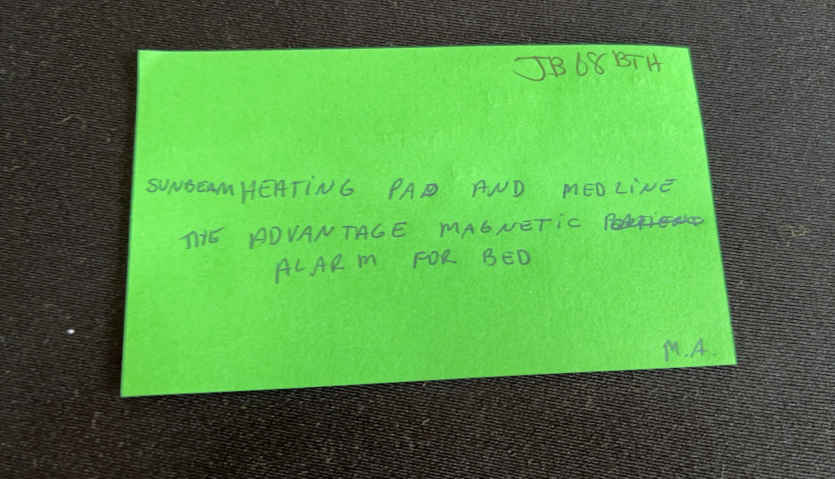 JB68BTH
SUNBEAM HEATING PAD AND MEDLINE
THE ADVANTAGE MAGNETIC
ALARM FOR BED
M.A.